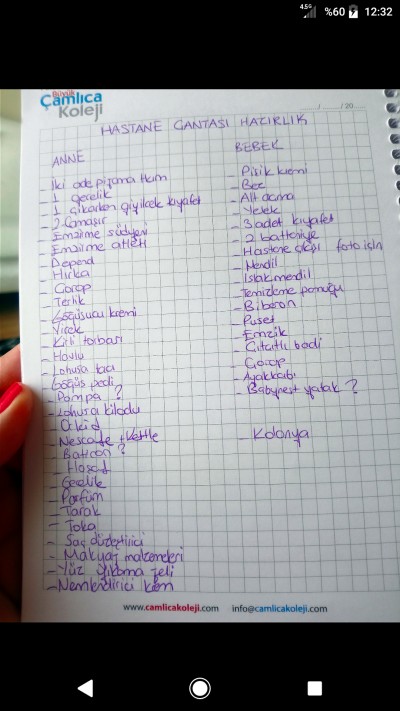 4.5G %60 12:32
Büyük
Çamlıca
Koleji
..../..../20....
HASTANE ÇANTASI HAZIRLIK
ANNE
- İki adet pijama takım
- 1 gecelik
- 1 çıkarken giyilecek kıyafet
- 2 Çamaşır
- Emzirme sütyeni
- Emzirme atleti
- Depend
- Hırka
- Çorap
- Terlik
- Göğüsucu kremi
- Yürek
- Kirli torbası
- Havlu
- Lohusa tacı
- Göğüs pedi
- Pompa ?
- Lohusa kilodu
- Orkid
- Nescafe + Kettle
- Baticon ?
- Hasad
- Gecelik
- Parfüm
- Tarak
- Toka
- Saç düzleştirici
- Makyaj malzemeleri
- Yüz yıkama jeli
- Nemlendirici krem
BEBEK
- Pişik kremi
- Bez
- Alt açma
- Yelek
- 3 adet kıyafet
- 2 battaniye
- Hastane çıkışı foto için
- Mendil
- Islak mendil
- Temizleme pamuğu
- Biberon
- Puset
- Emzik
- Çıtçıtlı badi
- Çorap
- Ayakkabı
- Babynest yatak ?
- Kolonya
www.camlicakoleji.com info@camlicakoleji.com